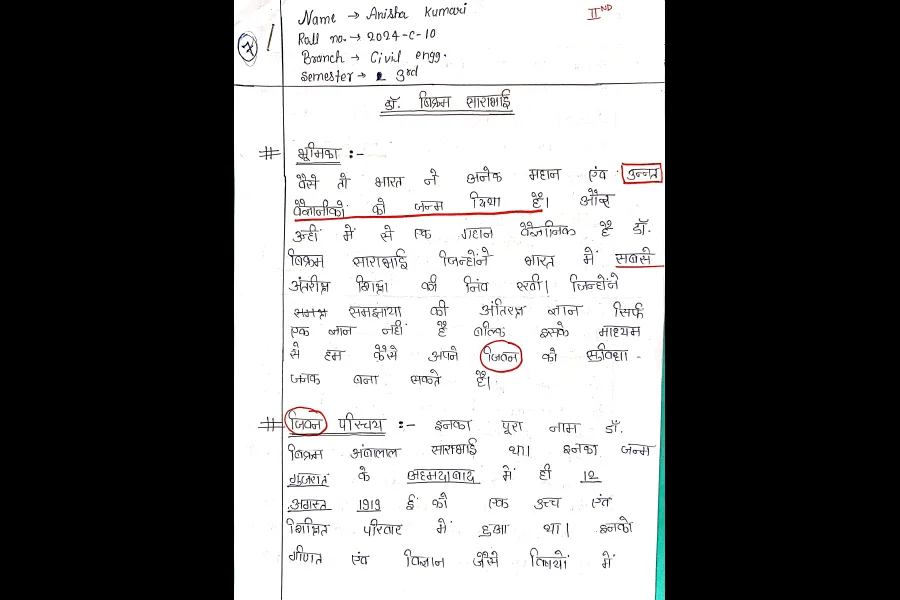 IIND
Name → Anisha Kumari
Roll no. → 2024-C-10
Branch → Civil engg.
Semester → 3rd
डॉ. विक्रम साराभाई
# भूमिका :-
वैसे तो भारत ने अनेक महान एवं उन्नत
वैज्ञानीकों को जन्म दिया है। और
उन्हीं में से एक महान वैज्ञानिक है डॉ.
विक्रम साराभाई जिन्होंने भारत में सबसे
अंतरीक्ष शिक्षा की निंव रखी। जिन्होंने
समझाया की अंतिरक्ष ज्ञान सिर्फ
एक ज्ञान नहीं है बल्कि इसके माध्यम
से हम कैसे अपने जिवन को सुविधा-
जनक बना सकते है।
# जिवन परिचय :- इनका पूरा नाम डॉ.
विक्रम अंबालाल साराभाई था। इनका जन्म
गुजरात के अहमदाबाद में ही 12
अगस्त 1919 ई को एक उच्च एवं
शिक्षित परिवार में हुआ था। इनको
गणित एवं विज्ञान जैसे विषयों में